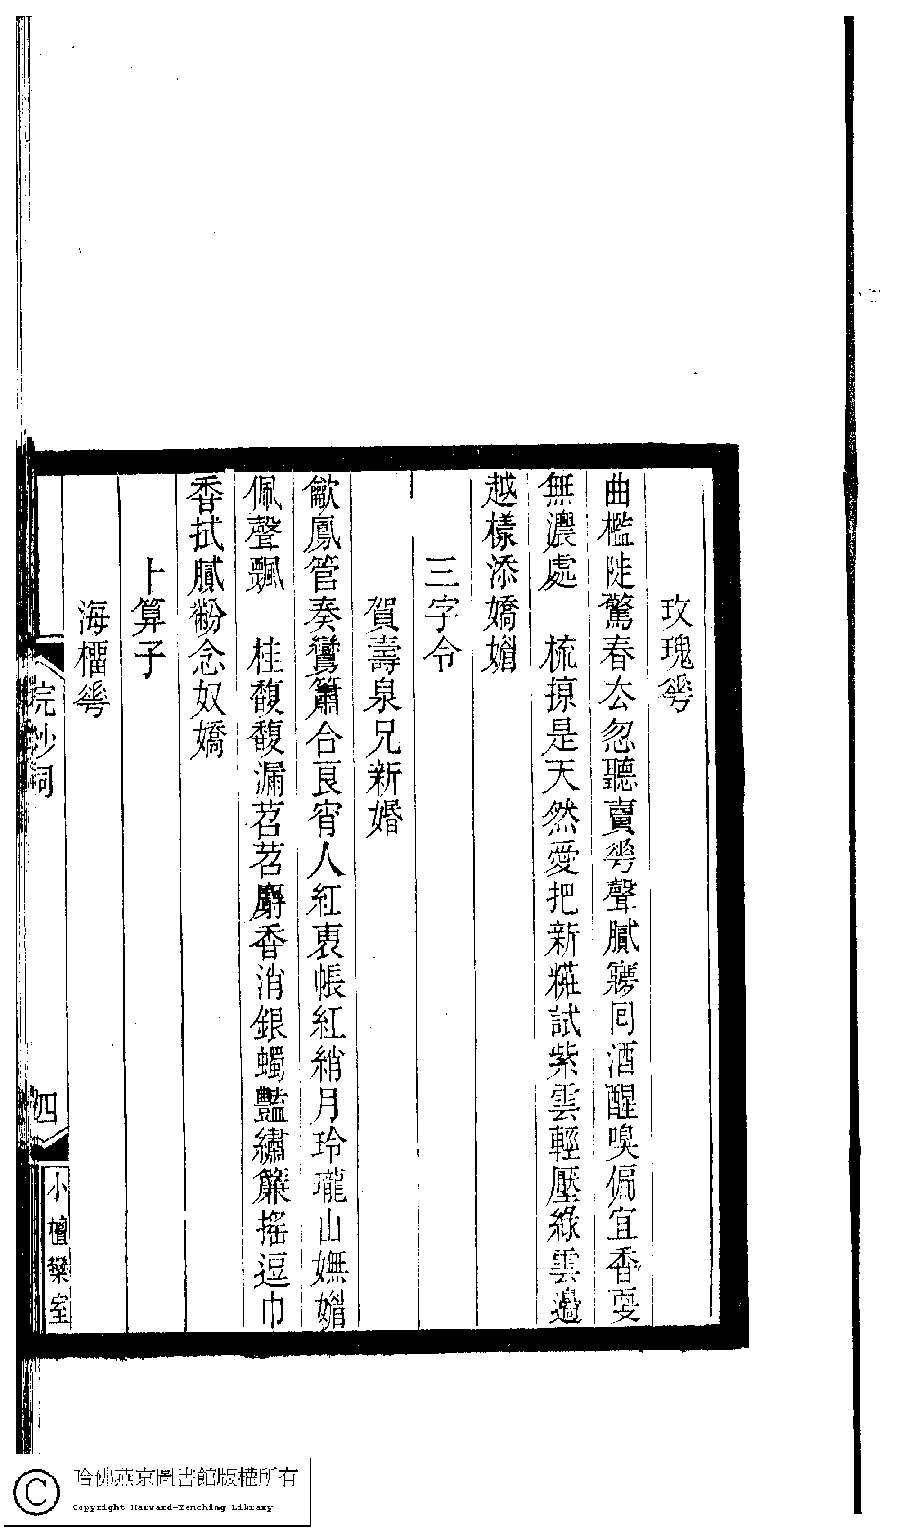 玫瑰蕚
曲檻陡驚春去忽聽賣蕚聲膩寱囘酒醒嗅偏宜香耎
無濃處　梳掠是天然愛把新糚試紫雲輕壓綠雲邊
越樣添嬌媚
三字令
賀壽泉兄新婚
歙鳳管奏鸞簫合良宵人紅裏帳紅綃月玲瓏山嫵媚
佩聲飄　桂馥馥漏苕苕麝香消銀蠋豔繡簾搖逗巾
香拭膩粉念奴嬌
卜算子
海橊蕚
浣紗詞
四
小檀欒室
哈佛燕京圖書館版權所有
Copyright Harvard-Yenching Library